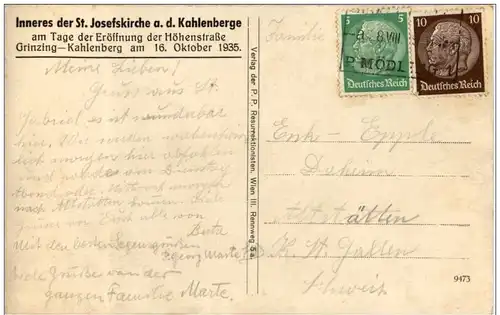 Inneres der St. Josefskirche a. d. Kahlenberge
am Tage der Eröffnung der Höhenstraße
Grinzing—Kahlenberg am 16. Oktober 1935.
Meine Lieben!
Gruss aus St.
Gabriel es ist wunderbar
hier. Wir werden wahrschein
lich morgen hier abfahren
und
Abend
nach Altstätten
Gruss von Euch alle von
Berta
Mit den besten Segensgrüßen
Georg Marte
viele Grüsse von der
ganzen Familie Marte.
Verlag der P. P. Resurrektionisten, Wien III, Rennweg 5a
Familie
5 5
8. VIII
P MÖDL
Deutsches Reich
10
Deutsches Reich
Daheim
Altstätten
K. St. Gallen
Schweiz
9473